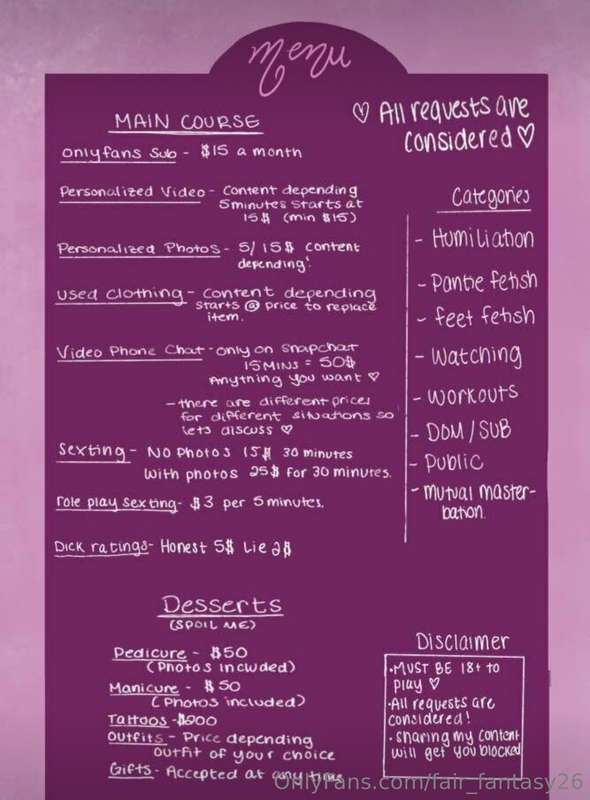 menu
♡ All requests are
considered ♡
MAIN COURSE
onlyfans Sub - $15 a month
Personalized Video - Content depending
5minutes starts at
15$ (min $15)
Personalized Photos - 5/15$ content
depending!
used clothing - Content depending
starts @ price to replace
item.
Video Phone Chat - only on snapchat
15MINS = 50$
Anything you want ♡
- there are different prices
for different situations so
lets discuss ♡
Sexting - NO Photos 15$ 30 minutes
With photos 25$ for 30 minutes.
role play sexting - $3 per 5 minutes.
Dick ratings - Honest 5$ Lie 2$
Categories
- Humiliation
- Pantie fetish
- feet fetish
- Watching
- Workouts
- DOM/SUB
- Public
- mutual master-
bation.
Desserts
(SPOIL ME)
Pedicure - $50
(Photos included)
Manicure - $50
(Photos included)
Tattoos - $200
Outfits - Price depending
outfit of your choice
Gifts - Accepted at any time
Disclaimer
• MUST BE 18+ to
play ♡
• All requests are
considered!
• sharing my content
will get you blocked
OnlyFans.com/fair_fantasy26